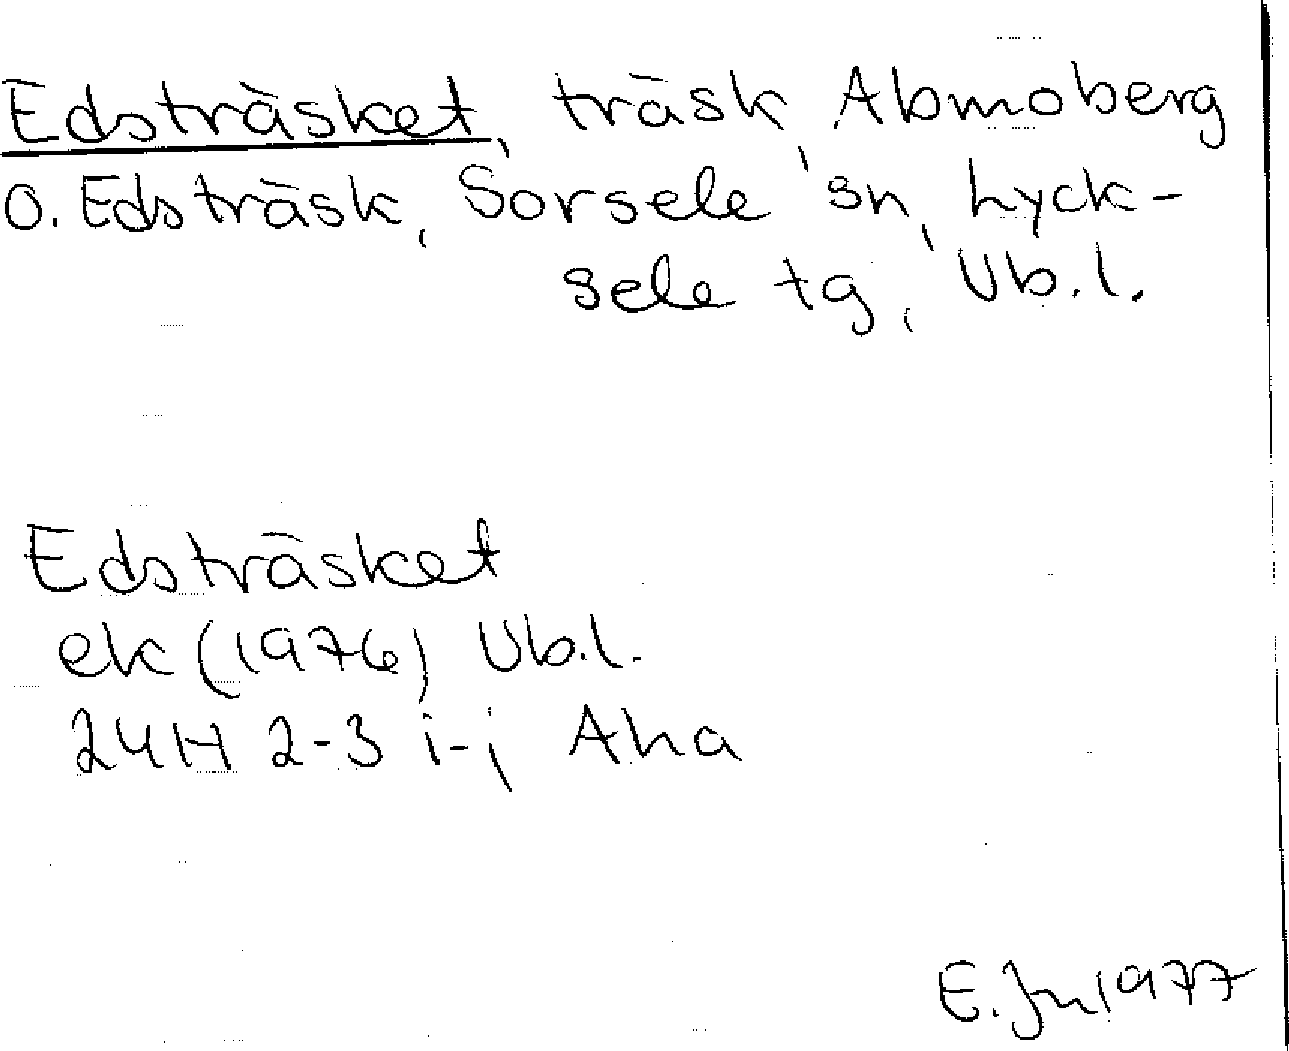 Edsträsket, träsk, Abmoberg
o. Edsträsk, Sorsele sn, Lyck-
sele tg, Vb.l.
Edsträsket
ek (1976) Vb.l.
24H 2-3 i-j Aha
E. Jn 1977